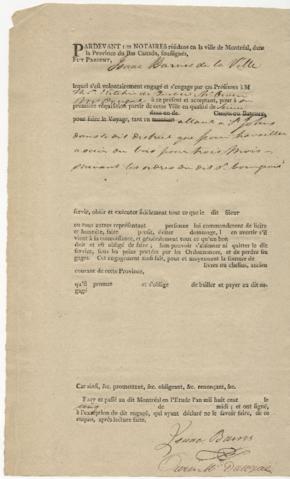 PARDEVANT les NOTAIRES résidens en la ville de Montréal, dans
la Province du Bas Canada, soussignés,
FUT PRESENT, Isaac Barnes de la Ville
lequel s'est volontairement engagé et s'engage par ces Présentes à M
à ce présent et acceptant, pour à
première réquisition partir de cette Ville en qualité de
dans un de Canots ou Bateaux,
pour faire le Voyage, tant en allant à St Johns
dans le dit district que pour travailler
pour trois mois
suivant les ordres du dit Sr bourgeois
servir, obéir et exécuter fidèlement tout ce que le dit Sieur
ou tous autres représentant personne lui commanderont de licite
et honnête, faire profit, éviter dommage, l'en avertir s'il
vient à sa connoissance, et généralement tout ce qu'un bon
doit et est obligé de faire ; sans pouvoir s'absenter ni quitter le dit
service, sous les peines portées par les Ordonnances, et de perdre ses
gages. Cet engagement ainsi fait, pour et moyennant la somme de
livres ou chelins, ancien
courant de cette Province,
qu'il promet et s'oblige de bailler et payer au dit en-
gagé
Car ainsi, &c. promettant, &c. obligeant, &c. renonçant, &c.
FAIT et passé au dit Montréal en l'Etude l'an mil huit cent le
de midi ; et ont signé,
à l'exception du dit engagé, qui ayant déclaré ne le savoir faire, de ce
enquis, après lecture faite.
Isaac Barns